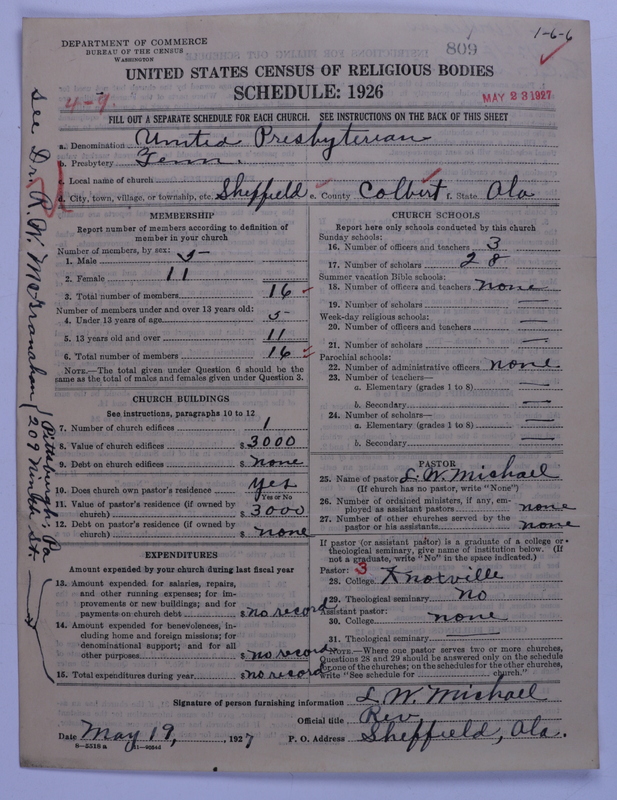 1-6-6
DEPARTMENT OF COMMERCE
BUREAU OF THE CENSUS
WASHINGTON
809
UNITED STATES CENSUS OF RELIGIOUS BODIES
SCHEDULE: 1926
4-9.
MAY 23 1927
FILL OUT A SEPARATE SCHEDULE FOR EACH CHURCH. SEE INSTRUCTIONS ON THE BACK OF THIS SHEET
a. Denomination United Presbyterian
b. Presbytery Tenn.
c. Local name of church
d. City, town, village, or township, etc. Sheffield e. County Colbert f. State Ala
MEMBERSHIP
Report number of members according to definition of
member in your church
Number of members, by sex:
1. Male 5
2. Female 11
3. Total number of members 16
Number of members under and over 13 years old:
4. Under 13 years of age 5
5. 13 years old and over 11
6. Total number of members 16
NOTE.—The total given under Question 6 should be the
same as the total of males and females given under Question 3.
CHURCH BUILDINGS
See instructions, paragraphs 10 to 12
7. Number of church edifices 1
8. Value of church edifices $3000
9. Debt on church edifices $none
10. Does church own pastor's residence yes
Yes or No
11. Value of pastor's residence (if owned by
church) $3000
12. Debt on pastor's residence (if owned by
church) $none
EXPENDITURES
Amount expended by your church during last fiscal year
13. Amount expended for salaries, repairs,
and other running expenses; for im-
provements or new buildings; and for
payments on church debt $no record
14. Amount expended for benevolences, in-
cluding home and foreign missions; for
denominational support; and for all
other purposes $no record
15. Total expenditures during year $no record
CHURCH SCHOOLS
Report here only schools conducted by this church
Sunday schools:
16. Number of officers and teachers 3
17. Number of scholars 28
Summer vacation Bible schools:
18. Number of officers and teachers none
19. Number of scholars —
Week-day religious schools:
20. Number of officers and teachers —
21. Number of scholars —
Parochial schools:
22. Number of administrative officers none
23. Number of teachers—
a. Elementary (grades 1 to 8) —
b. Secondary —
24. Number of scholars—
a. Elementary (grades 1 to 8) —
b. Secondary —
PASTOR
25. Name of pastor L. W. Michael
(If church has no pastor, write "None")
26. Number of ordained ministers, if any, em-
ployed as assistant pastors none
27. Number of other churches served by the
pastor or his assistants none
If pastor (or assistant pastor) is a graduate of a college or
theological seminary, give name of institution below. (If
not a graduate, write "No" in the space indicated.)
Pastor: 3
28. College Knoxville
29. Theological seminary no
Assistant pastor:
30. College none
31. Theological seminary —
NOTE.—Where one pastor serves two or more churches,
Questions 28 and 29 should be answered only on the schedule
for one of the churches; on the schedules for the other churches,
write "See schedule for church."
Signature of person furnishing information L. W. Michael
Official title Rev
Date May 19, 1927 P. O. Address Sheffield, Ala.
8—5518 a
See Dr. R. W. McGranahan
Pittsburgh, Pa
209 Ninth St.